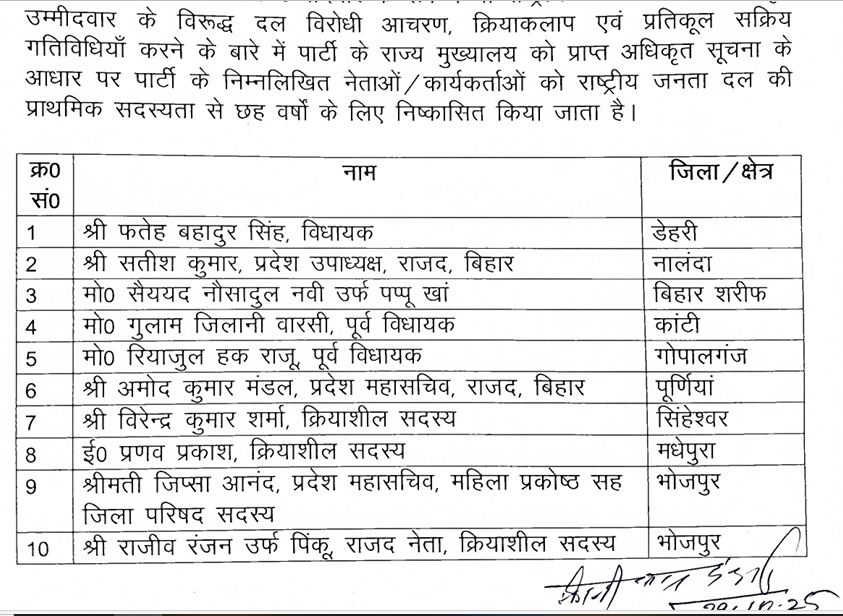 उम्मीदवार के विरूद्ध दल विरोधी आचरण, क्रियाकलाप एवं प्रतिकूल सक्रिय
गतिविधियाँ करने के बारे में पार्टी के राज्य मुख्यालय को प्राप्त अधिकृत सूचना के
आधार पर पार्टी के निम्नलिखित नेताओं/कार्यकर्ताओं को राष्ट्रीय जनता दल की
प्राथमिक सदस्यता से छह वर्षो के लिए निष्कासित किया जाता है।
क्र0 सं0 नाम जिला/क्षेत्र
1 श्री फतेह बहादुर सिंह, विधायक डेहरी
2 श्री सतीश कुमार, प्रदेश उपाध्यक्ष, राजद, बिहार नालंदा
3 मो0 सैययद नौसादुल नवी उर्फ पप्पू खां बिहार शरीफ
4 मो0 गुलाम जिलानी वारसी, पूर्व विधायक कांटी
5 मो0 रियाजुल हक राजू, पूर्व विधायक गोपालगंज
6 श्री अमोद कुमार मंडल, प्रदेश महासचिव, राजद, बिहार पूर्णियां
7 श्री विरेन्द्र कुमार शर्मा, क्रियाशील सदस्य सिंहेश्वर
8 ई0 प्रणव प्रकाश, क्रियाशील सदस्य मधेपुरा
9 श्रीमती जिप्सा आनंद, प्रदेश महासचिव, महिला प्रकोष्ठ सह भोजपुर
जिला परिषद सदस्य
10 श्री राजीव रंजन उर्फ पिंकू, राजद नेता, क्रियाशील सदस्य भोजपुर